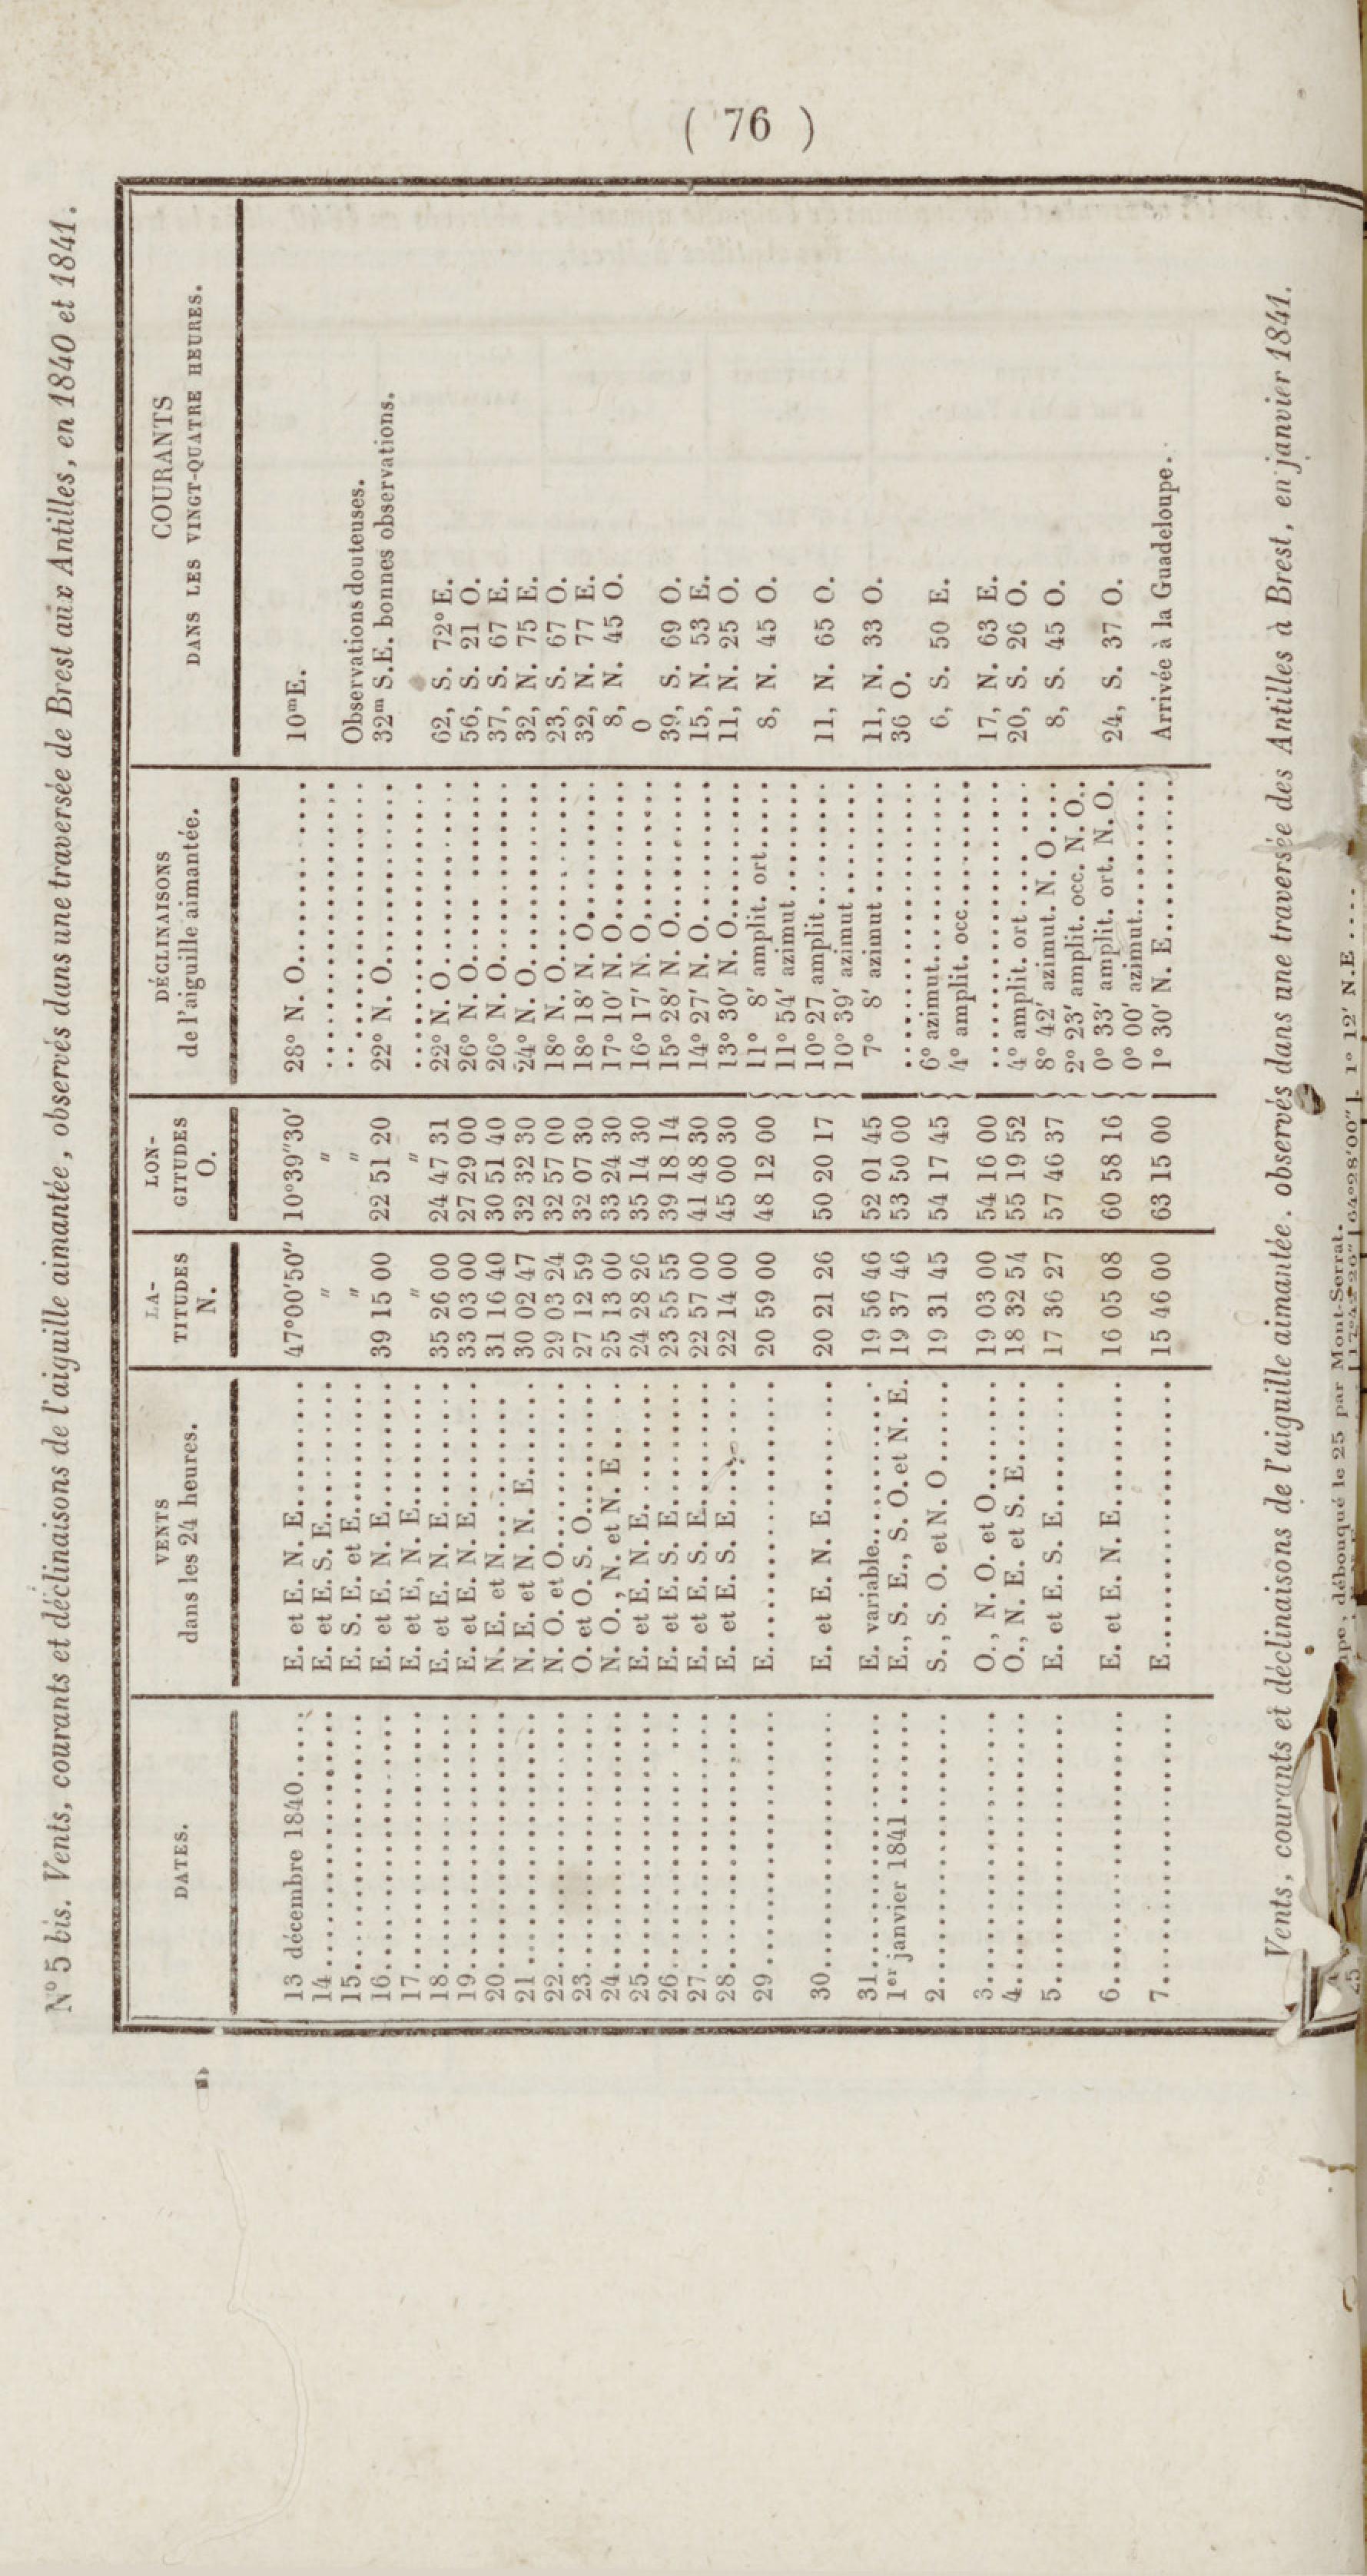 ( 76 )
N° 5 bis. Vents, courants et déclinaisons de l'aiguille aimantée, observés dans une traversée de Brest aux Antilles, en 1840 et 1841.
DATES. VENTS dans les 24 heures. LATITUDES N. LONGITUDES O. DÉCLINAISONS de l'aiguille aimantée. COURANTS DANS LES VINGT-QUATRE HEURES.
13 décembre 1840.... E. et E. N. E.......... 47°00'50" 10°39"30' 28° N. O............ 10m E.
14.................... E. et E. S. E.......... " " ....................
15.................... E. S. E. et E.......... " " .................... Observations douteuses.
16.................... E. et E. N. E.......... 39 15 00 22 51 20 22° N. O............ 32m S.E. bonnes observations.
17.................... E. et E, N. E.......... " " ....................
18.................... E. et E. N. E.......... 35 26 00 24 47 31 22° N. O............ 62, S. 72° E.
19.................... E. et E. N. E.......... 33 03 00 27 29 00 26° N. O............ 56, S. 21 O.
20.................... N. E. et N............ 31 16 40 30 51 40 26° N. O............ 37, S. 67 E.
21.................... N. E. et N. N. E....... 30 02 47 32 32 30 24° N. O............ 32, N. 75 E.
22.................... N. O. et O............ 29 03 24 32 57 00 18° N. O............ 23, S. 67 O.
23.................... O. et O. S. O......... 27 12 59 32 07 30 18° 18' N. O......... 32, N. 77 E.
24.................... N. O., N. et N. E .... 25 13 00 33 24 30 17° 10' N. O......... 8, N. 45 O.
25.................... E. et E. N. E......... 24 28 26 35 14 30 16° 17' N. O......... 0
26.................... E. et E. S. E......... 23 55 55 39 18 14 15° 28' N. O......... 39, S. 69 O.
27.................... E. et E. S. E......... 22 57 00 41 48 30 14° 27' N. O......... 15, N. 53 E.
28.................... E. et E. S. E......... 22 14 00 45 00 30 13° 30' N. O......... 11, N. 25 O.
29.................... E.................... 20 59 00 48 12 00 { 11° 8' amplit. ort..... 8, N. 45 O.
11° 54' azimut ........
30.................... E. et E. N. E......... 20 21 26 50 20 17 { 10° 27 amplit......... 11, N. 65 O.
10° 39' azimut ........
31.................... E. variable........... 19 56 46 52 01 45 7° 8' azimut ......... 11, N. 33 O.
1er janvier 1841 ....... E., S. E., S. O. et N. E. 19 37 46 53 50 00 .................... 36 O.
2.................... S., S. O. et N. O ...... 19 31 45 54 17 45 { 6° azimut............. 6, S. 50 E.
4° amplit. occ.........
3.................... O., N. O. et O......... 19 03 00 54 16 00 .................... 17, N. 63 E.
4.................... O., N. E. et S. E...... 18 32 54 55 19 52 4° amplit. ort ........ 20, S. 26 O.
5.................... E. et E. S. E......... 17 36 27 57 46 37 { 8° 42' azimut. N. O.... 8, S. 45 O.
2° 23' amplit. occ. N. O..
6.................... E. et E. N. E......... 16 05 08 60 58 16 { 0° 33' amplit. ort. N. O. 24, S. 37 O.
0° 00' azimut.........
7.................... E.................... 15 46 00 63 15 00 1° 30' N. E........... Arrivée à la Guadeloupe.
Vents, courants et déclinaisons de l'aiguille aimantée, observés dans une traversée des Antilles à Brest, en janvier 1841.
débouqué le 25 par Mont-Serrat.
25 64°28'00" 1° 12' N.E ....